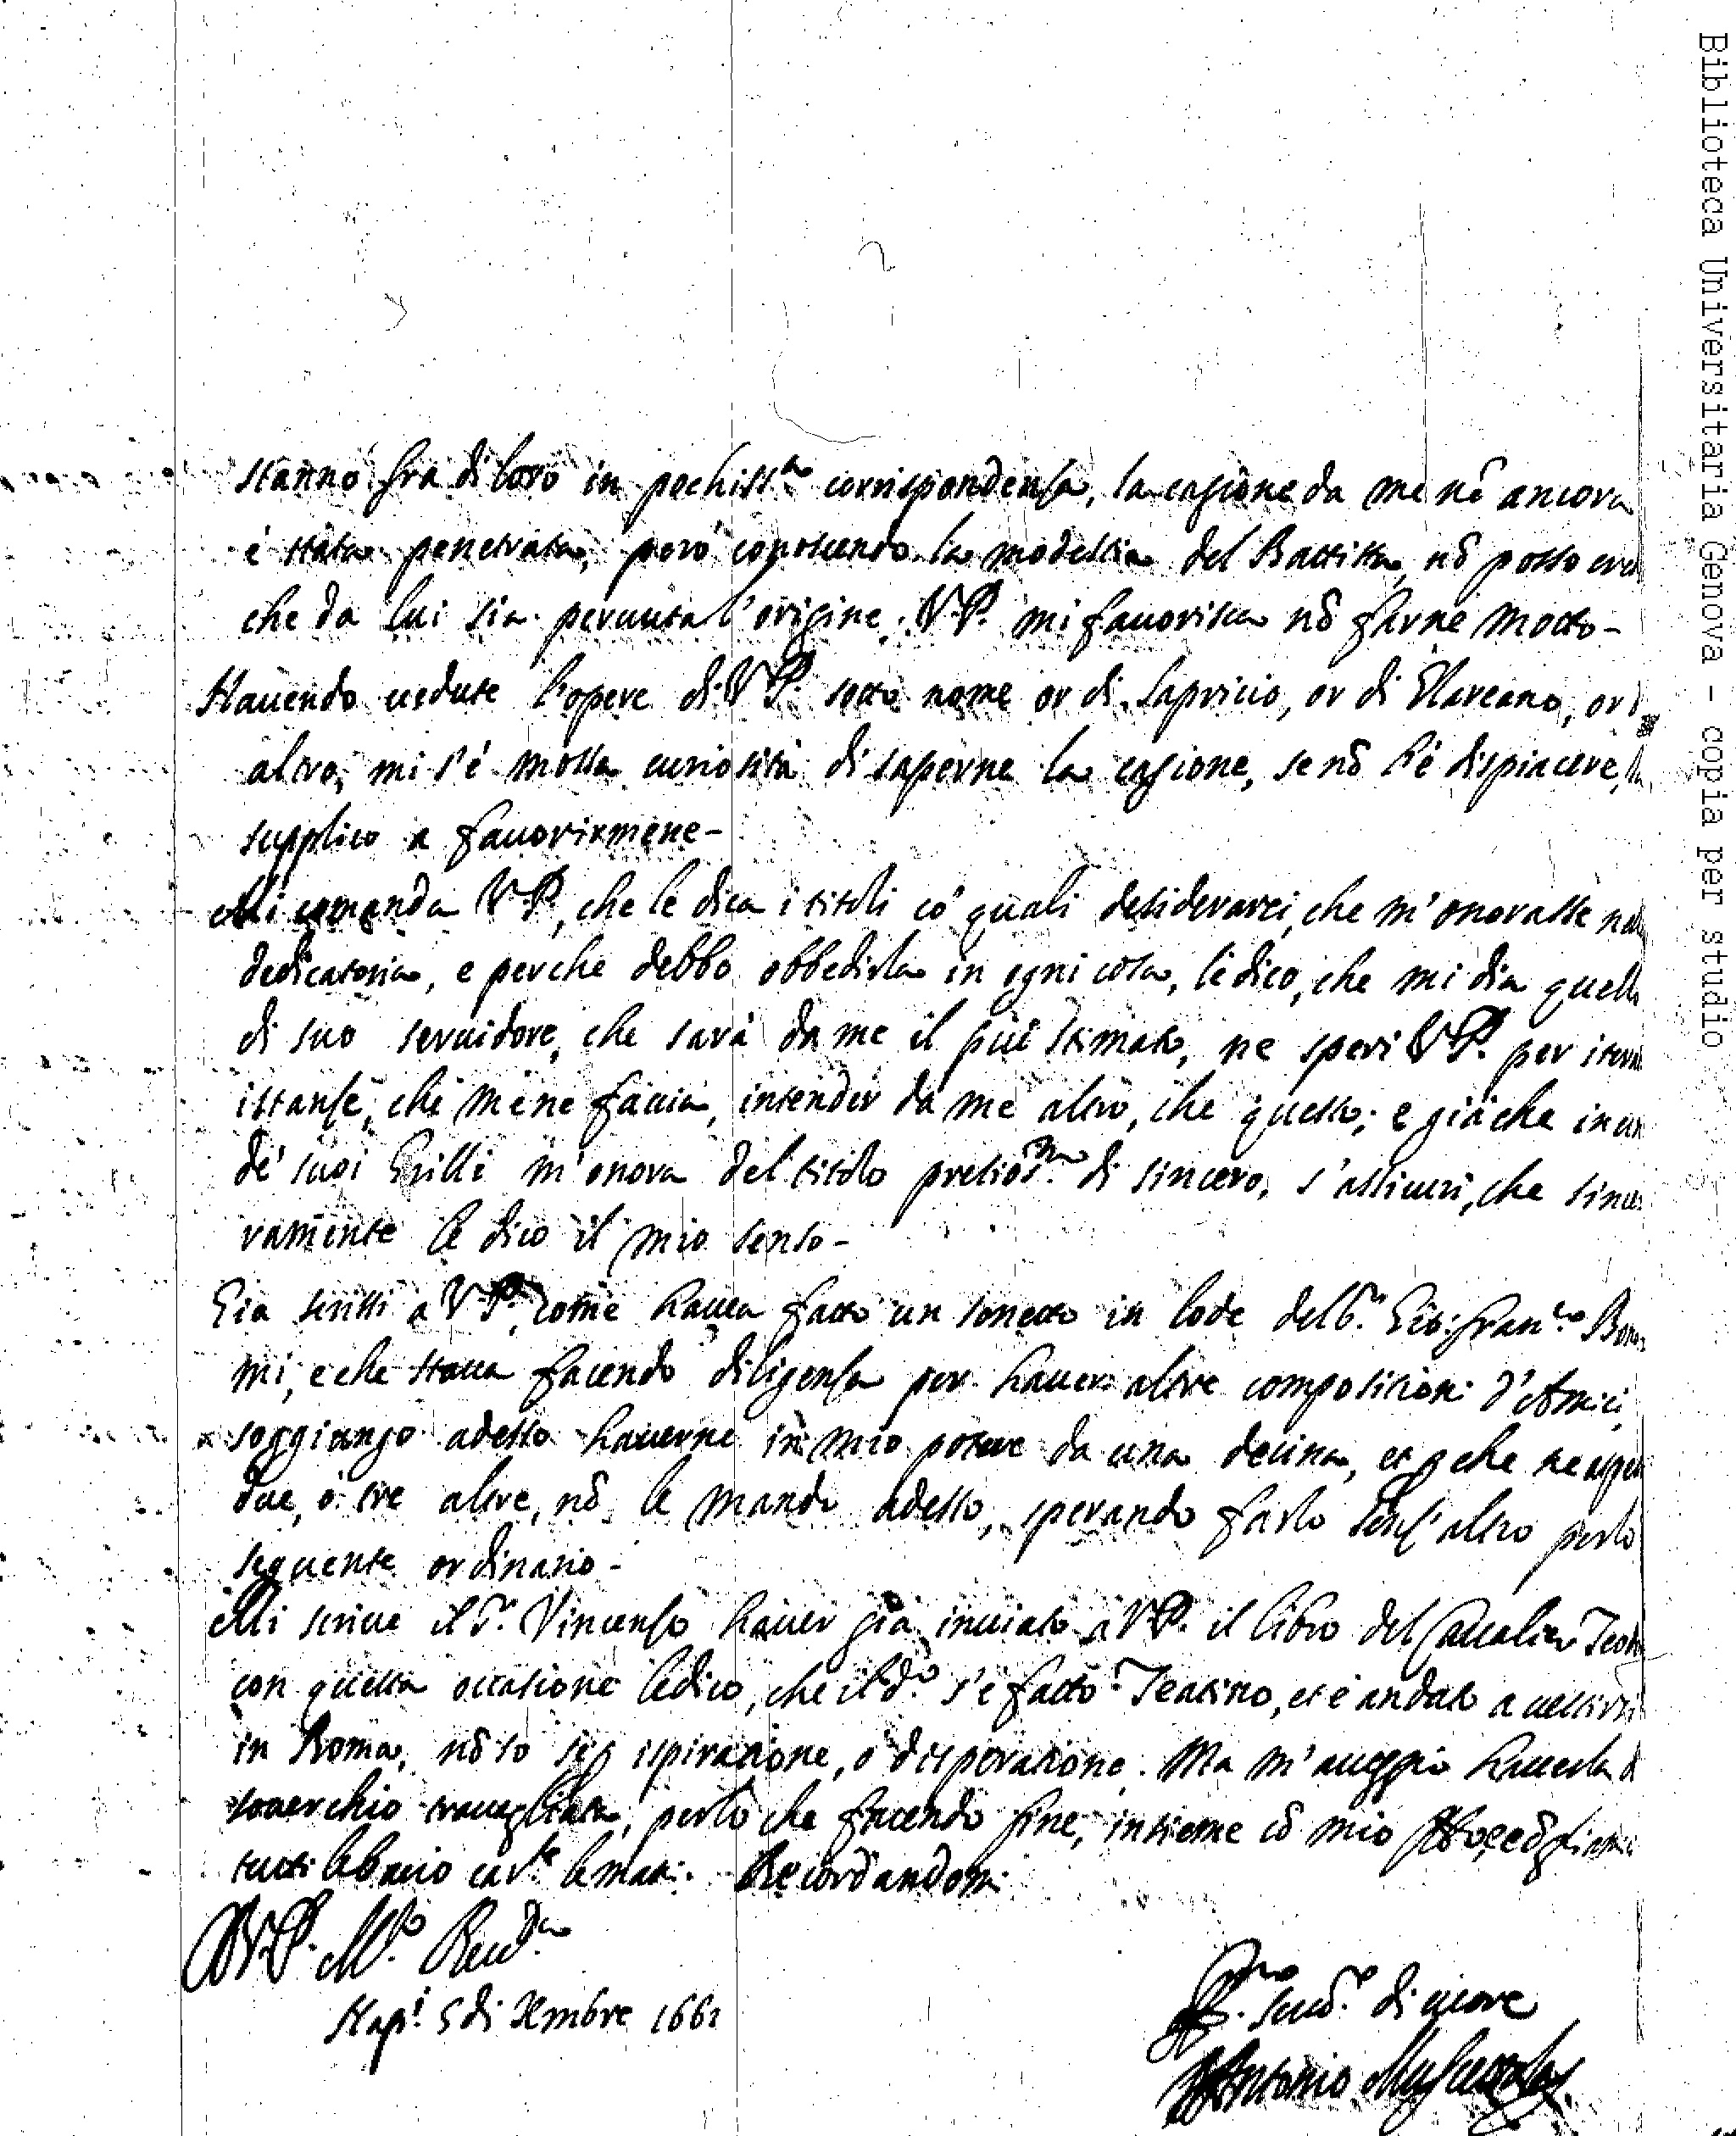 stanno fra di loro in pochiss.ma corrispondenza, la cagione da me nõ ancora
è stata penetrata, però conoscendo la modestia del Battista, nõ posso cred
che da lui sia peruuta l'origine. V.P. mi fauorisca nõ farne motto-
Hauendo uedute l'opere di V.P. sotto nome or di Sapricio, or di Narceano, or d
altro, mi s'è mossa curiosità di saperne la cagione, se nõ l'è dispiacere, la
supplico a fauorirmene-
Mi comanda V.P., che le dica i titoli co' quali desiderarei, che m'onorasse nella
dedicatoria, e perche debbo obbedirla in ogni cosa, le dico, che mi dia quello
di suo seruidore, che sarà da me il più stimato, ne speri V.P. per
istanze, che mene faccia, intender da me altro, che questo; e già che in un
de' suoi Grilli m'onora del titolo pretios.mo di sincero, s'assicuri, che since
ramente le dico il mio senso-
Gia scrissi à V.P. come hauea fatto un sonetto in lode del S.r Gio: Fran.co Bon
mi, e che staua facendo diligenza per hauer altre composizioni d'Amici,
soggiungo adesso hauerne in mio potere da una decina, et che ne
due, ò tre altre, nõ le mando adesso, sperando farlo senz'altro per lo
seguente ordinario-
Mi scriue il S.r Vincenzo hauer già inuiato à V.P. il libro del Caualier
con questa occasione le dico, che il d.o s'è fatto Teatino, et è andato a uestirsi
in Roma, nõ so se ispirazione, o disperazione. Ma m'aueggio hauerla di
souerchio trauagliata, per lo che facendo fine, insieme cõ mio
tutti le bacio car.te le mani. Recordandomi
D.V.P. M.to Reu.da
Nap.i 5 di Xmbre 1661
Ser.re di cuore
Antonio